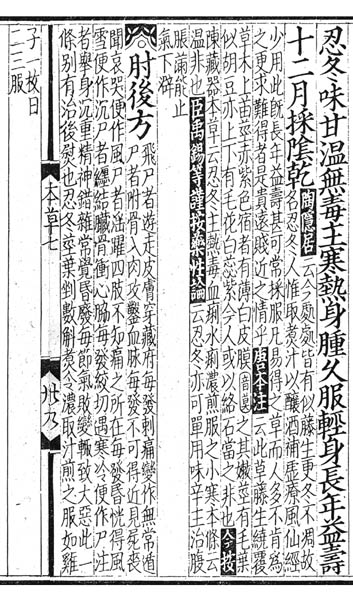 忍冬味甘溫無毒主寒熱身腫久服輕身長年益壽
十二月採陰乾陶隱居云今處處皆有似藤生更冬不凋故
名忍冬人惟取煮汁以釀酒補虛療風仙經
少用此既長年益壽甚可常採服凡易得之草而人多不肯為
之更求難得者是貴遠賤近之情乎唐本注云此草藤生繞覆
草木上苗莖赤紫色宿者有薄白皮膜音莫之其嫩莖有毛葉
似胡豆亦上下有毛花白蘂紫今人或以絡石當之非也今按
陳藏器本草云忍冬主熱毒血痢水痢濃煎服之小寒本條云
溫非也臣禹錫等謹按藥性論云忍冬亦可單用味辛主治腹
脹滿能止
氣下澼
肘後方飛尸者遊走皮膚穿藏府每發刺痛變作無常遁
尸者附骨入肉攻鑿血脉每發不可得近見死喪
聞哀哭便作風尸者淫躍四肢不知痛之所在每發昏恍得風
雪便作沉尸者纏結臟骨衝心脇每發絞切遇寒冷便作尸注
者舉身沉重精神錯雜常覺昏廢每節氣改變輒致大惡此一
條別有治後熨也忍冬莖葉剉數斛煮令濃取汁煎之服如雞
本草七
子一枚日
二三服